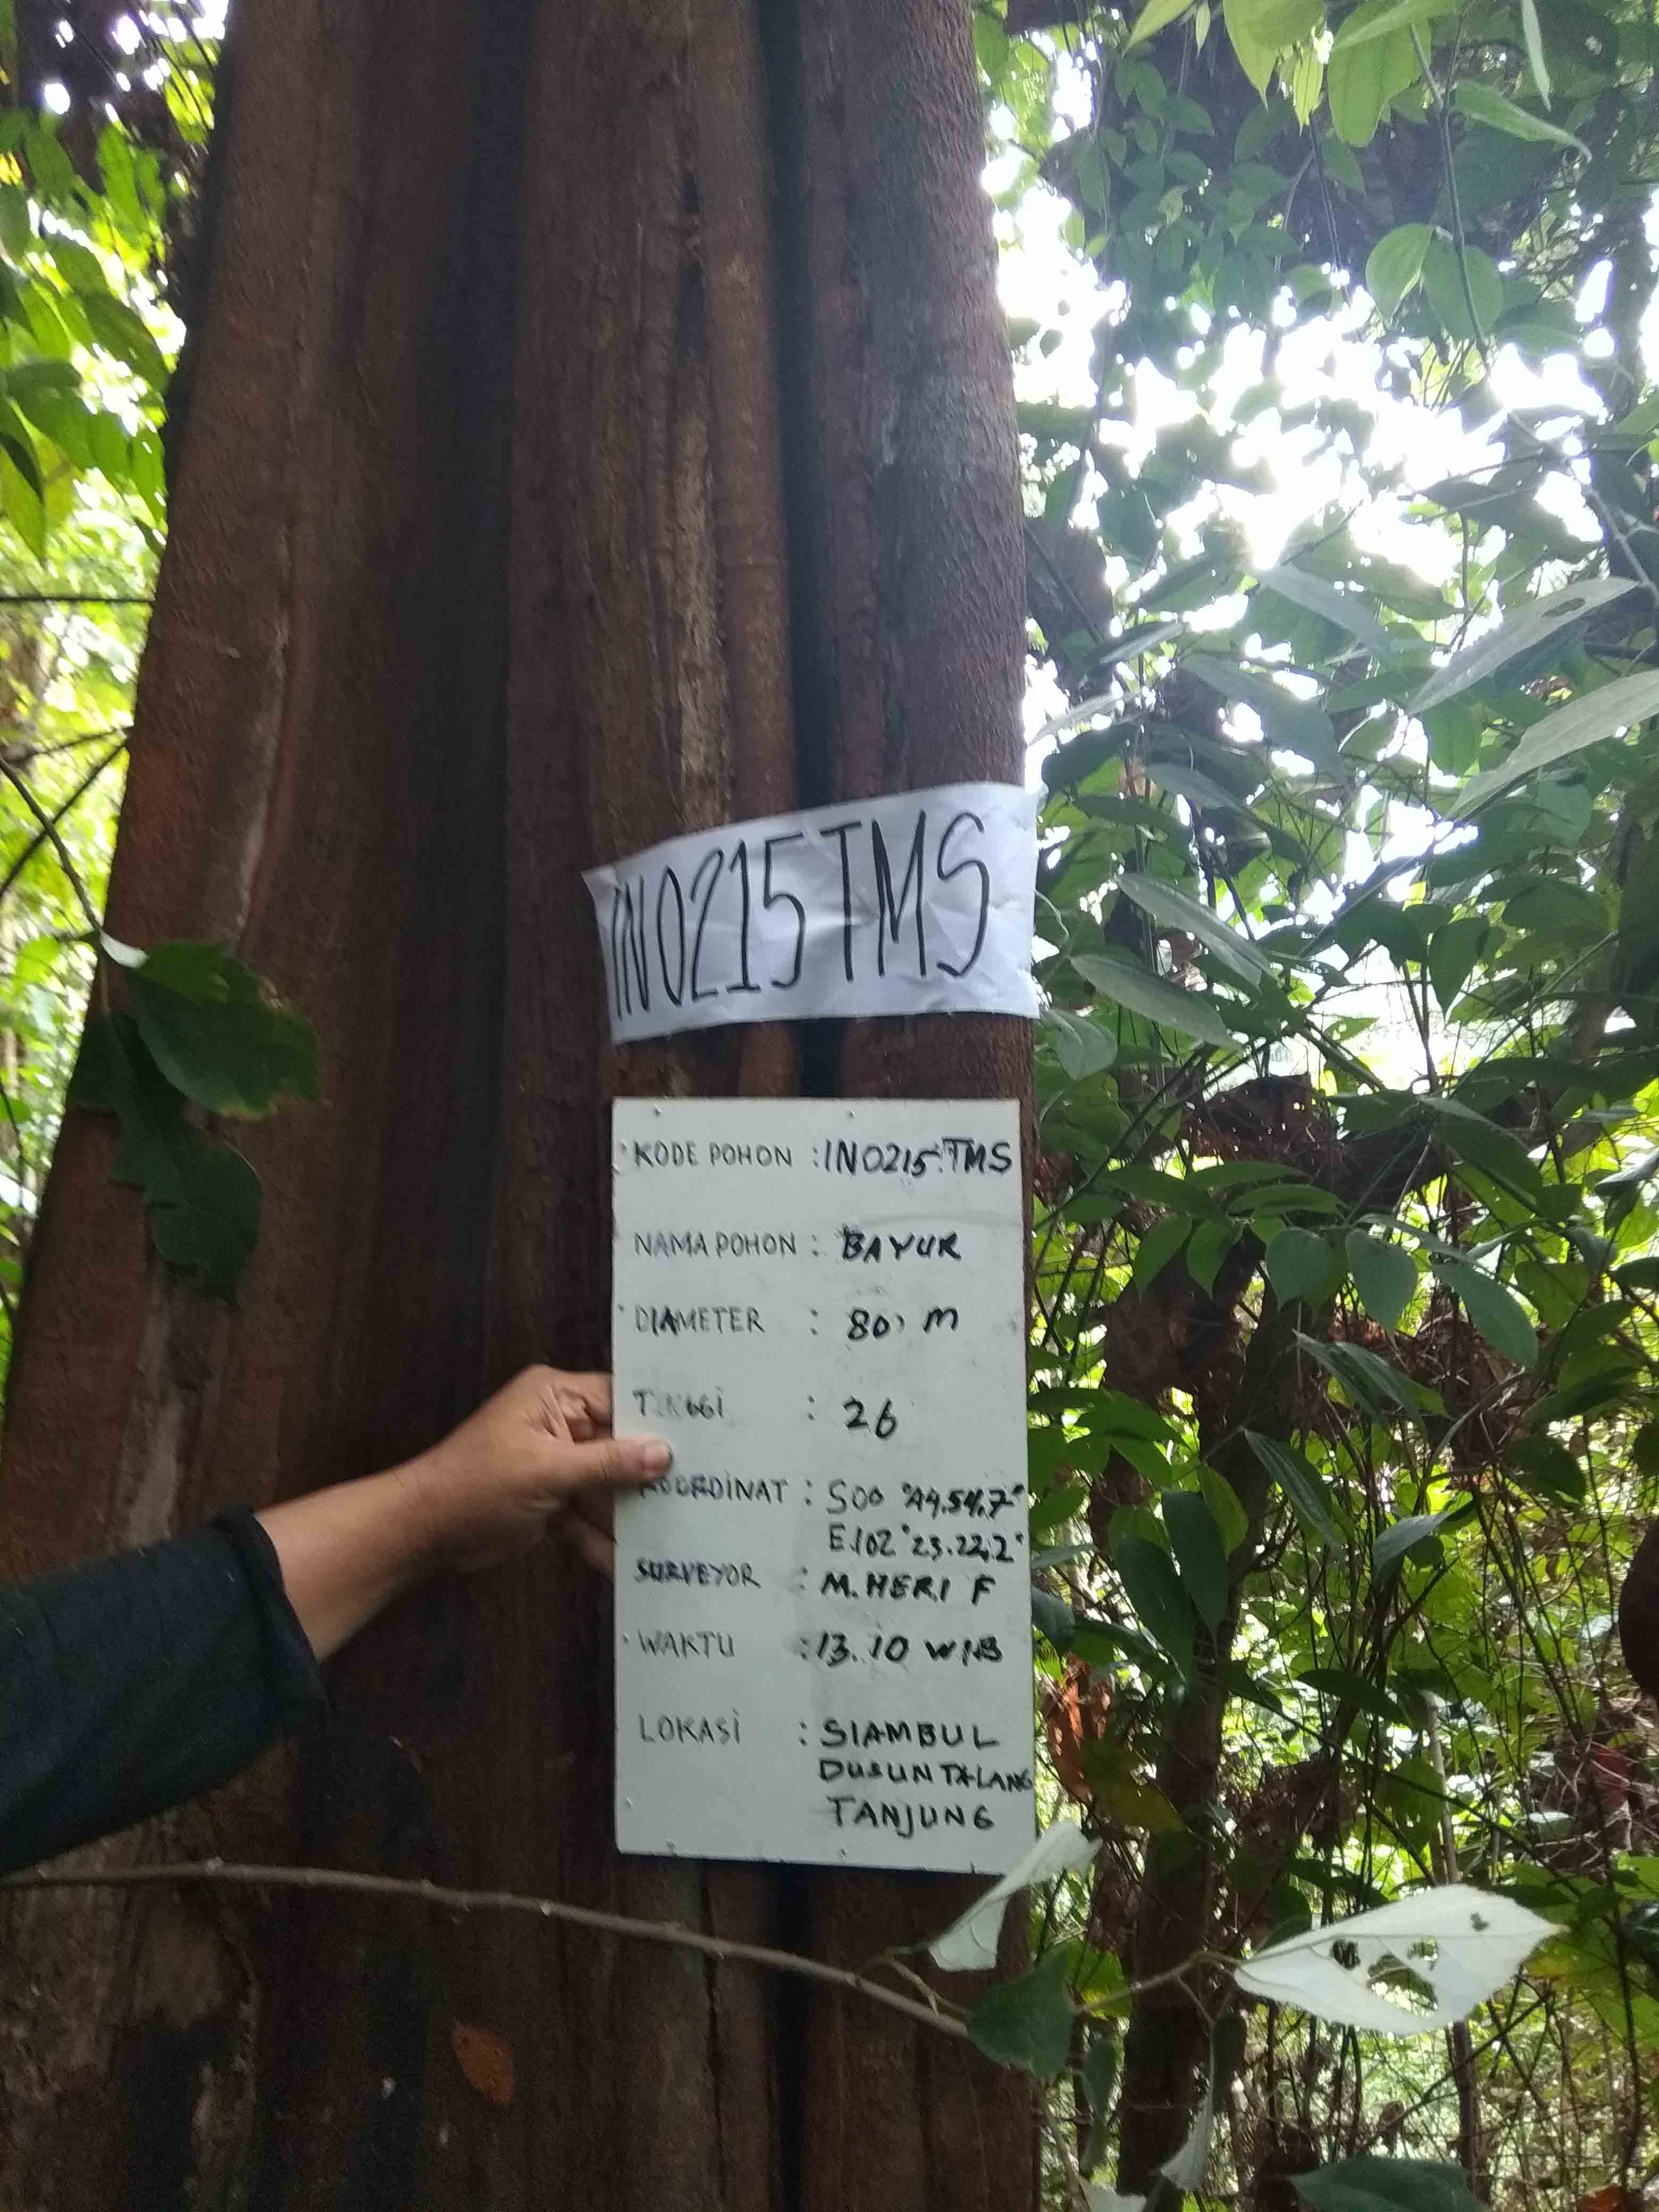 IN0215TMS
KODE POHON : IN0215.TMS
NAMA POHON : BAYUR
DIAMETER : 80, M
TINGGI : 26
KOORDINAT : S00 °44.54,7"
E.102°23.22,2"
SURVEYOR : M.HERI F
WAKTU : 13.10 WIB
LOKASI : SIAMBUL
DUSUN TALANG
TANJUNG